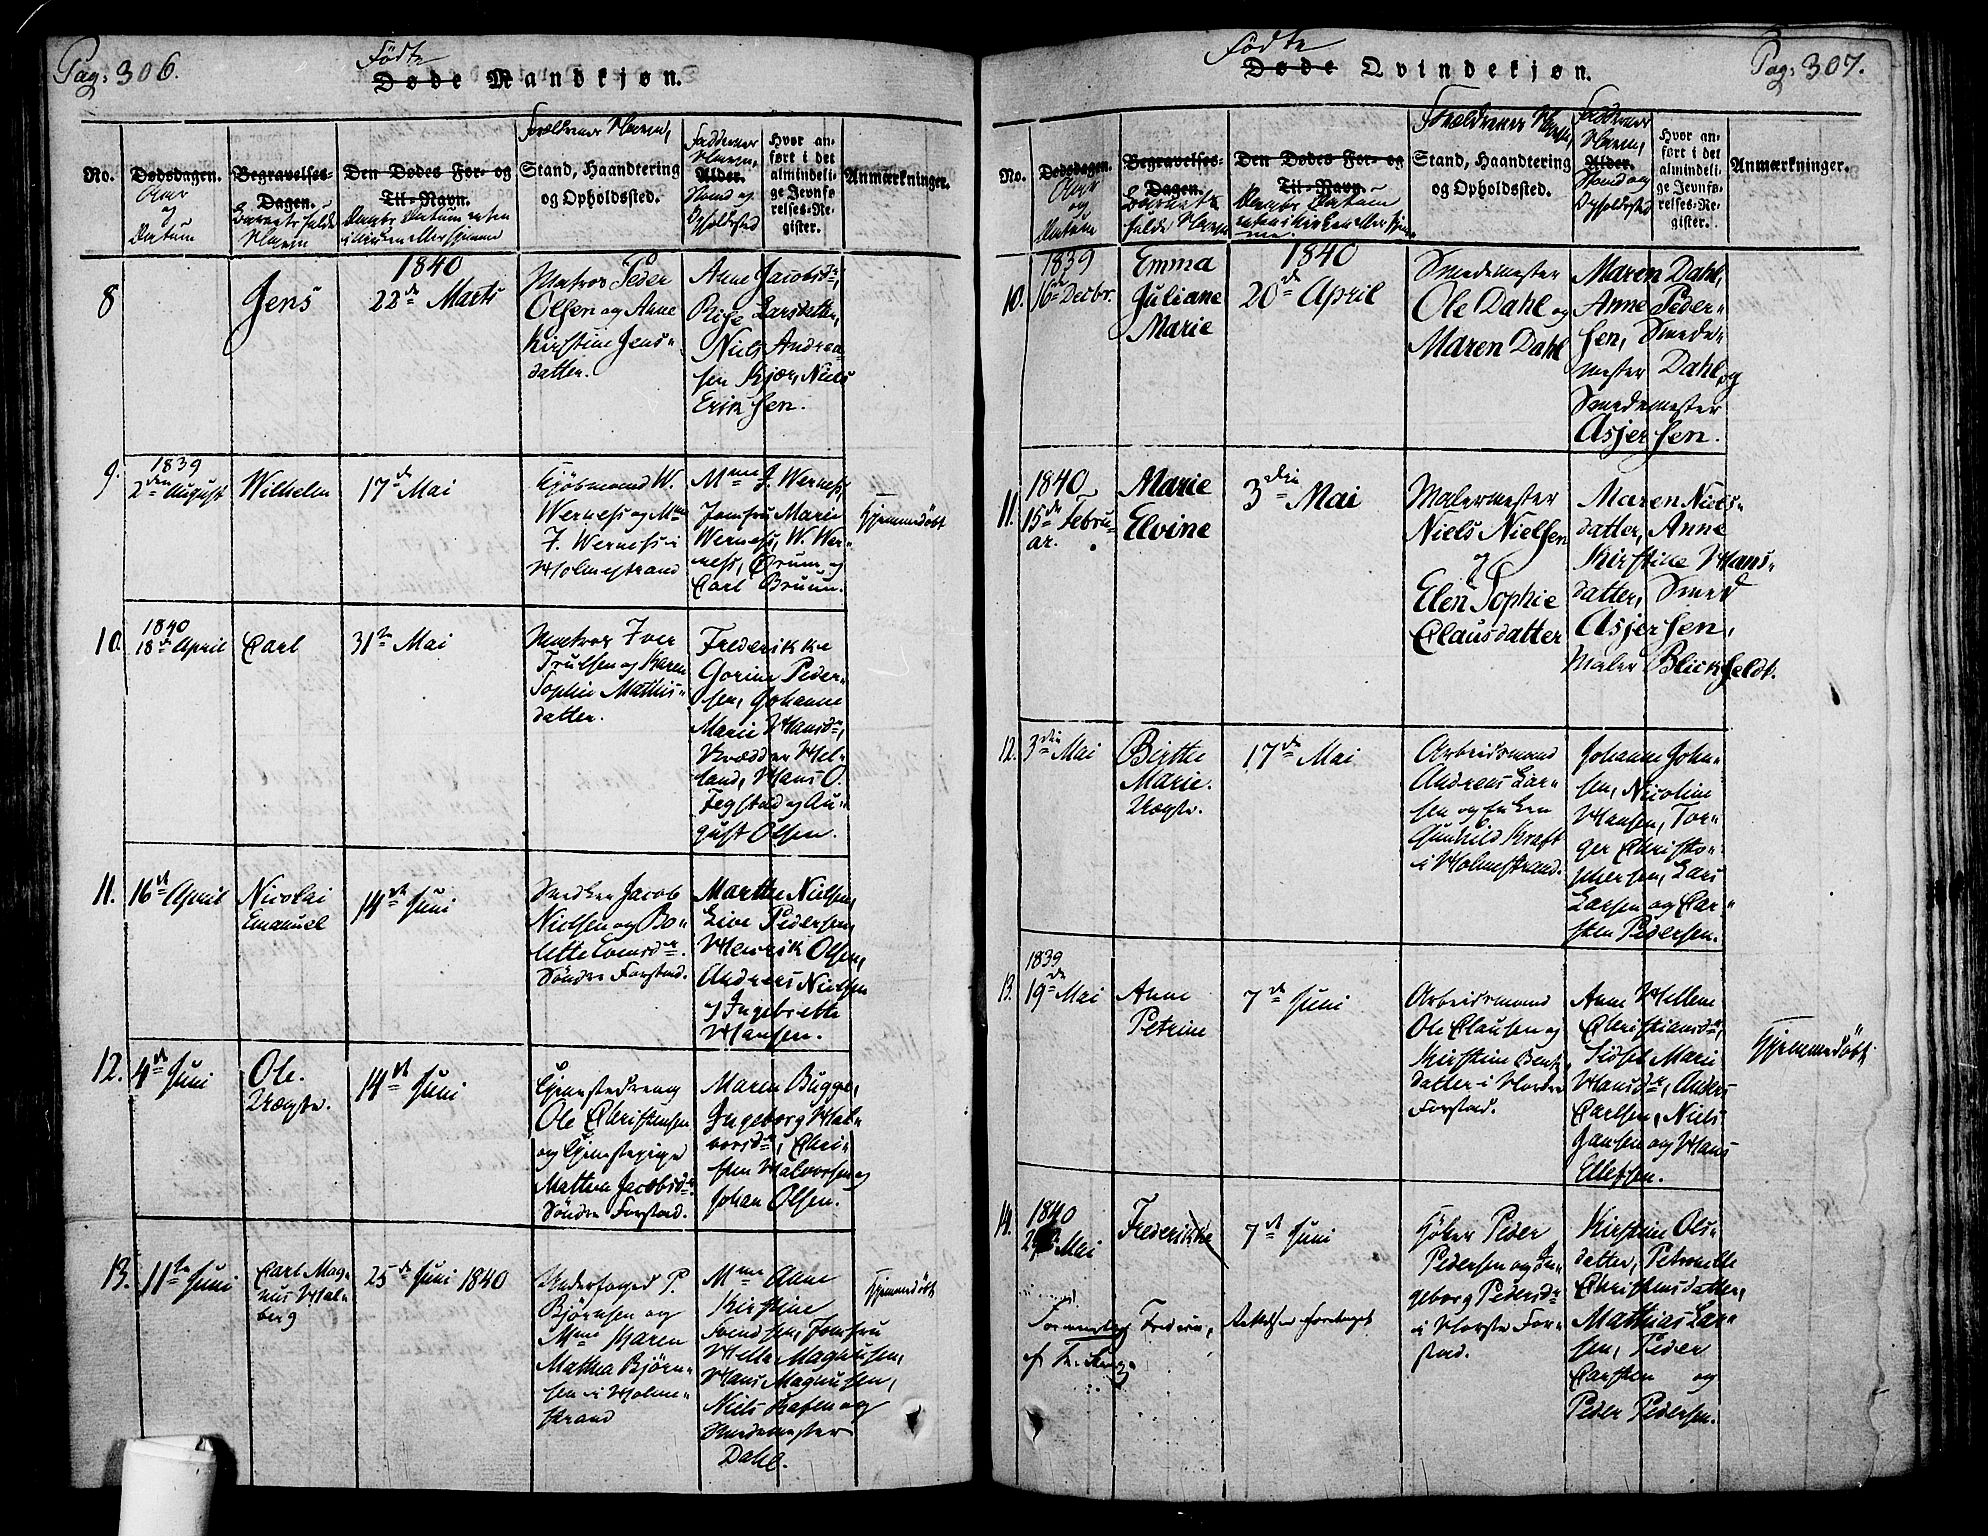 Pag: 306.
Födte
Døde Mandkjøn.
No.
Dødsdagen.
Aar
og
Datum
Begravelses-
Dagen.
Barnets fulde
Navn
Den Dødes For- og
Til-Navn.
Forældrenes Navn,
Stand, Haandtering
og Opholdssted.
Faddernes
Navn,
Alder.
Stand og
Opholdssted
Hvor an-
ført i det
almindeli-
ge Jevnfø-
relses-Re-
gister.
Anmærkninger.
8
Jens
1840
22de Marts
Matros Peder
Olsen og Anne
Kirstine Jens-
datter.
Anne Jacobsdr,
Larsdatter,
Niels Andrea-
sen Kjær, Niels
Eriksen.
9.
1839
2den August
Wilhelm
17de Mai
Kjøbmand W.
Werness og Mme
J. Werness i
Holmestrand
Mme J. Werness,
Jomfru Marie
Werness, W. Wer-
ness, Orum og
Carl Bruun.
Hjemmedøbt
10.
1840
18de April
Carl
31te Mai
Matros Iver
Trulsen og Karen
Sophie Mathis-
datter.
Frederikke
Gorine Peder-
sen, Johanne
Marie Hansdr,
Hel-
land, Hans O.
Tegstad og Au-
gust Olsen.
11.
16de April
Nicolai
Emanuel
14de Juni
Snedker Jacob
Nielsen og Bo-
lette Evensdr.
Søndre Forstad.
Marthe Nielsen,
Live Pedersen,
Henrik Olsen,
Andreas Nielsen
og Ingebrette
Hansen.
12.
4de Juni
Ole.
Uægte.
14de Juni
Tjenestedreng
Ole Christensen
og Tjenestepige
Mathea Jacobsdr
Søndre Forstad.
Maren Bugge,
Ingeborg Hal-
vorsdr, Chri-
sten Halvorsen og
Johan Olsen.
13.
11te Juni
Carl Mag-
nus Hal-
berg
25de Juni 1840
Underfoged P.
Bjørnsen og
Mme Karen
Mathea Bjørn-
sen i Holme-
strand
Mme Anne
Kirstine
Svendsen, Jomfru
Helle Magnusen,
Hans Magnusen,
Niels Hansen og
Smedemester
Dahl.
Hjemmedøbt
Pag: 307.
Födte
Døde Qvindekjøn.
No.
Dødsdagen.
Aar
og
Datum
Begravelses-
Dagen.
Barnets
fulde Navn
Den Dødes For- og
Til-Navn.
Forældrenes Navn,
Stand, Haandtering
og Opholdssted.
Faddernes
Navn,
Alder.
Stand og
Opholdssted
Hvor an-
ført i det
almindeli-
ge Jevnfø-
relses-Re-
gister.
Anmærkninger.
10.
1839
16de Decbr.
Emma
Juliane
Marie
1840
20de April
Smedemester
Ole Dahl og
Maren Dahl
Maren Dahl,
Anne Peder-
sen, Smede-
mester Dahl og
Smedemester
Asjersen.
11.
1840
15de Febru-
ar.
Marie
Elvine
3die Mai
Malermester
Niels Nielsen
og
Elen Sophie
Clausdatter
Maren Niels-
datter, Anne
Kirstine Hans-
datter, Smed
Asjersen,
Maler Blickfeldt.
12.
3die Mai
Birthe
Marie.
Uægte.
17de Mai
Arbeidsmand
Andreas Lar-
sen og Enken
Gunhild Kraft
i Holmestrand.
Johanne John-
sen, Nicoline
Hansen, Tor-
ger Christo-
phersen, Lars
Larsen og Car-
sten Pedersen.
13.
1839
19de Mai
Anne
Petrine
7de Juni
Arbeidsmand
Ole Clausen og
Kirstine Bent-
datter i Nordre
Forstad.
Anne Hellene
Christiansdr,
Sidsel Marie
Hansdr, Anders
Carlsen, Niels
Jansen og Hans
Ellefsen.
Hjemmedøbt
14.
1840
Mai
Frederikke
7de Juni
Peder
Pedersen og In-
geborg Pedersdr
i Norste For-
stad.
Kirstine Ols-
datter, Petronille
Christensdatter,
Mathias Lar-
sen, Peder
Carsten og
Peder Pedersen.
Rettelse foretaget